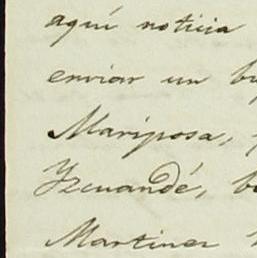 aquí noticia
enviar un
Mariposa,
Yzcuandé,
Martinez